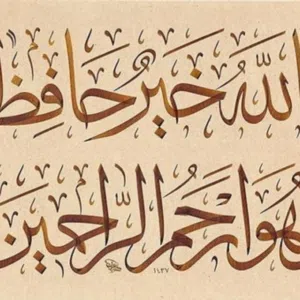 الله خَيْرٌ حَافِظ
هُوَ أَرْحَمُ الرَّاحِمِين
١٤٣٧